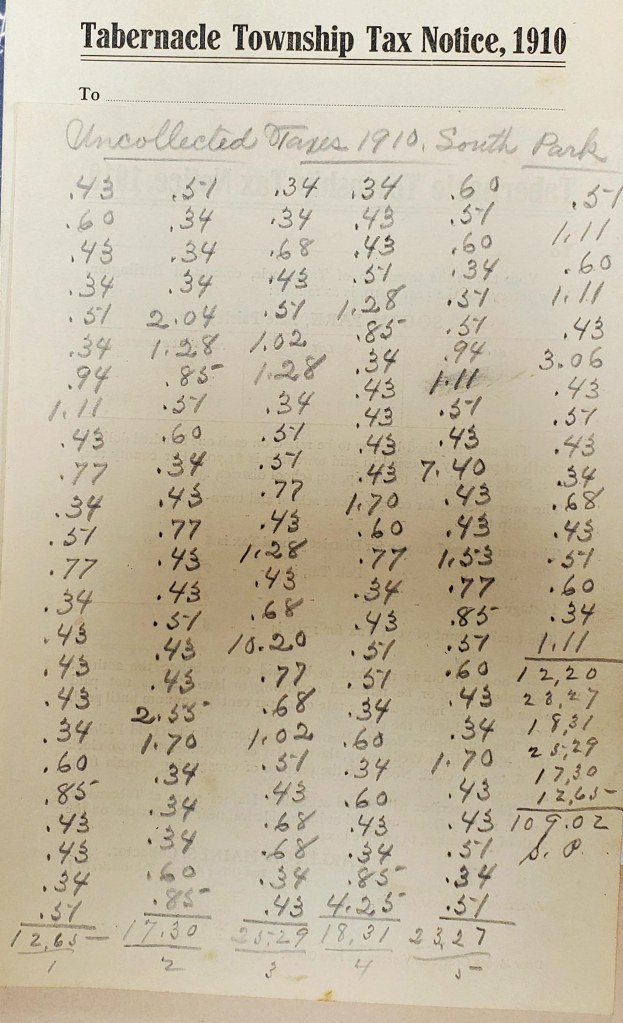 Tabernacle Township Tax Notice, 1910
To
Uncollected Taxes 1910. South Park
.43
.60
.43
.34
.51
.34
.94
1.11
.43
.77
.34
.51
.77
.34
.43
.43
.43
.34
.60
.85
.43
.43
.34
.51
12,65
1
.51
.34
.34
.34
2.04
1.28
.85
.51
.60
.34
.43
.77
.43
.43
.51
.43
.43
2.55
1.70
.34
.34
.34
.60
.85
17.30
2
.34
.34
.68
.43
.51
1.02
1.28
.34
.51
.51
.77
.43
1.28
.43
.68
10.20
.77
.68
1.02
.51
.43
.68
.68
.34
.43
25.29
3
.34
.43
.43
.51
1.28
.85
.34
.43
.43
.43
.43
1.70
.60
.77
.34
.43
.51
.51
.34
.60
.34
.60
.43
.34
.85
4.25
18,31
4
.60
.51
.60
.34
.51
.51
.94
1.11
.51
.43
7.40
.43
.43
1.53
.77
.85
.51
.60
.43
.34
1.70
.43
.43
.51
.34
.51
23,27
5
.51
1.11
.60
1.11
.43
3.06
.43
.51
.43
.34
.68
.43
.51
.60
.34
1.11
12,20
23,27
18,31
25,29
17,30
12,65
109.02
S. P.